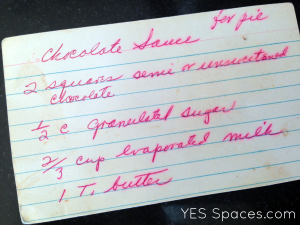 Chocolate Sauce for pie
2 squares semi or unsweetened
chocolate
1/2 c granulated sugar
2/3 cup evaporated milk
1 T. butter
YES Spaces.com